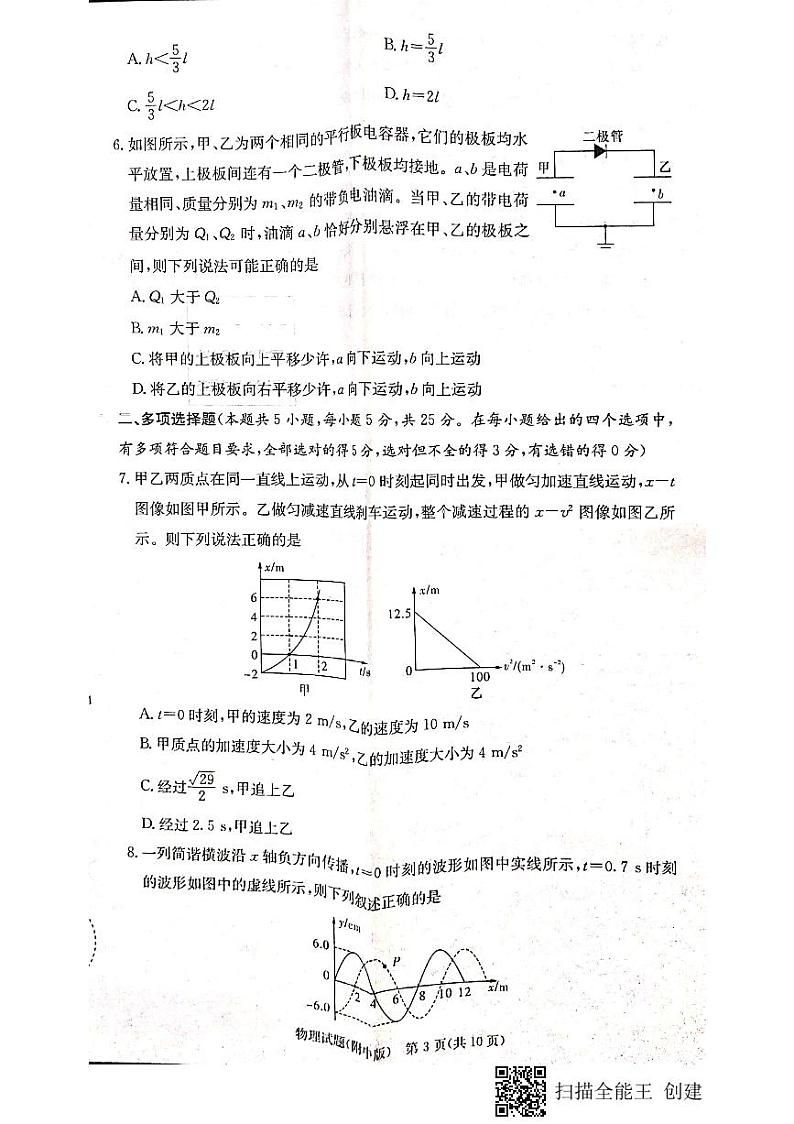 A. h<5/3 l
B. h=5/3 l
C. 5/3 l<h<2l
D. h=2l
6. 如图所示,甲、乙为两个相同的平行板电容器,它们的极板均水
平放置,上极板间连有一个二极管,下极板均接地。a、b 是电荷
量相同、质量分别为 m₁、m₂ 的带负电油滴。当甲、乙的带电荷
量分别为 Q₁、Q₂ 时,油滴 a、b 恰好分别悬浮在甲、乙的极板之
间,则下列说法可能正确的是
二极管
甲
乙
a
b
A. Q₁ 大于 Q₂
B. m₁ 大于 m₂
C. 将甲的上极板向上平移少许,a 向下运动,b 向上运动
D. 将乙的上极板向右平移少许,a 向下运动,b 向上运动
二、多项选择题(本题共 5 小题,每小题 5 分,共 25 分。在每小题给出的四个选项中,
有多项符合题目要求,全部选对的得 5 分,选对但不全的得 3 分,有选错的得 0 分)
7. 甲乙两质点在同一直线上运动,从 t=0 时刻起同时出发,甲做匀加速直线运动,x-t
图像如图甲所示。乙做匀减速直线刹车运动,整个减速过程的 x-v² 图像如图乙所
示。则下列说法正确的是
x/m
6
4
2
0
-2
1
2
t/s
甲
x/m
12.5
0
100
v²/(m²·s⁻²)
乙
A. t=0 时刻,甲的速度为 2 m/s,乙的速度为 10 m/s
B. 甲质点的加速度大小为 4 m/s²,乙的加速度大小为 4 m/s²
C. 经过 √29/2 s,甲追上乙
D. 经过 2.5 s,甲追上乙
8. 一列简谐横波沿 x 轴负方向传播,t=0 时刻的波形如图中实线所示,t=0.7 s 时刻
的波形如图中的虚线所示,则下列叙述正确的是
y/cm
6.0
0
-6.0
P
2 4 6 8 10 12 x/m
物理试题(附中版) 第 3 页(共 10 页)
扫描全能王 创建